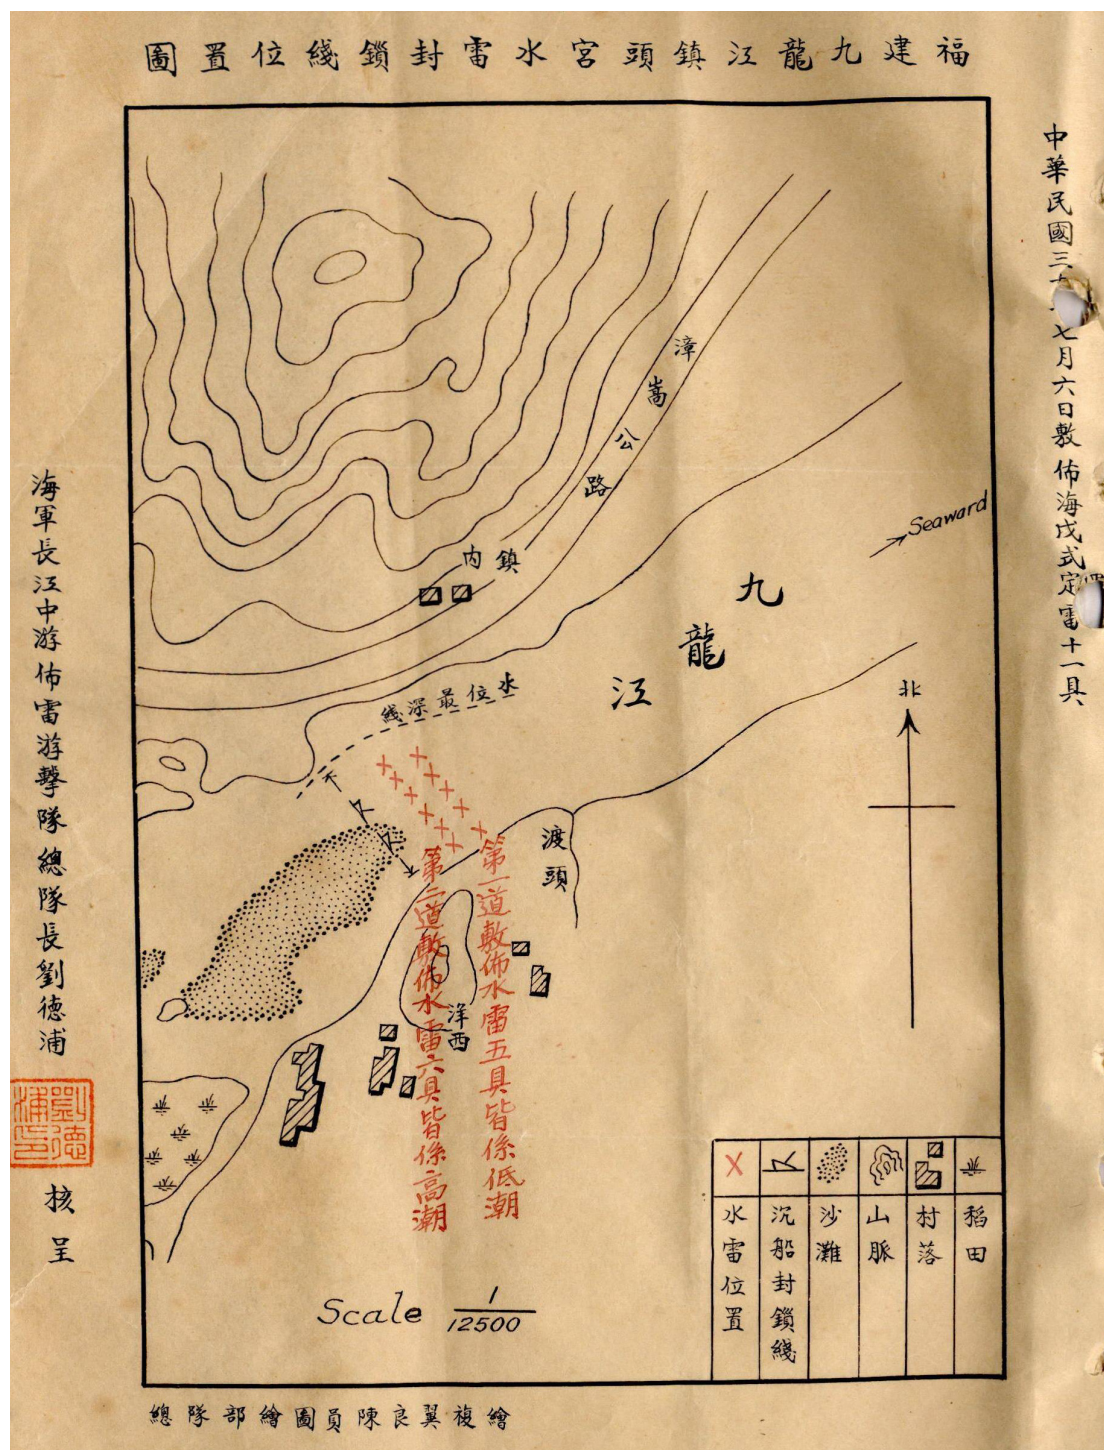 福建九龍江鎮頭宮水雷封鎖綫位置圖
中華民國三十
七月六日敷佈海戊式定雷十一具
漳嵩公路
Seaward
鎮内
九龍江
水位最深綫
北
渡頭
第一道敷佈水雷五具皆係低潮
第二道敷佈水雷六具皆係高潮
洋西
稻田
村落
山脈
沙灘
沉船封鎖綫
水雷位置
Scale 1/12500
海軍長江中游佈雷游擊隊總隊長劉德浦
劉德浦印
核呈
總隊部繪圖員陳良翼複繪